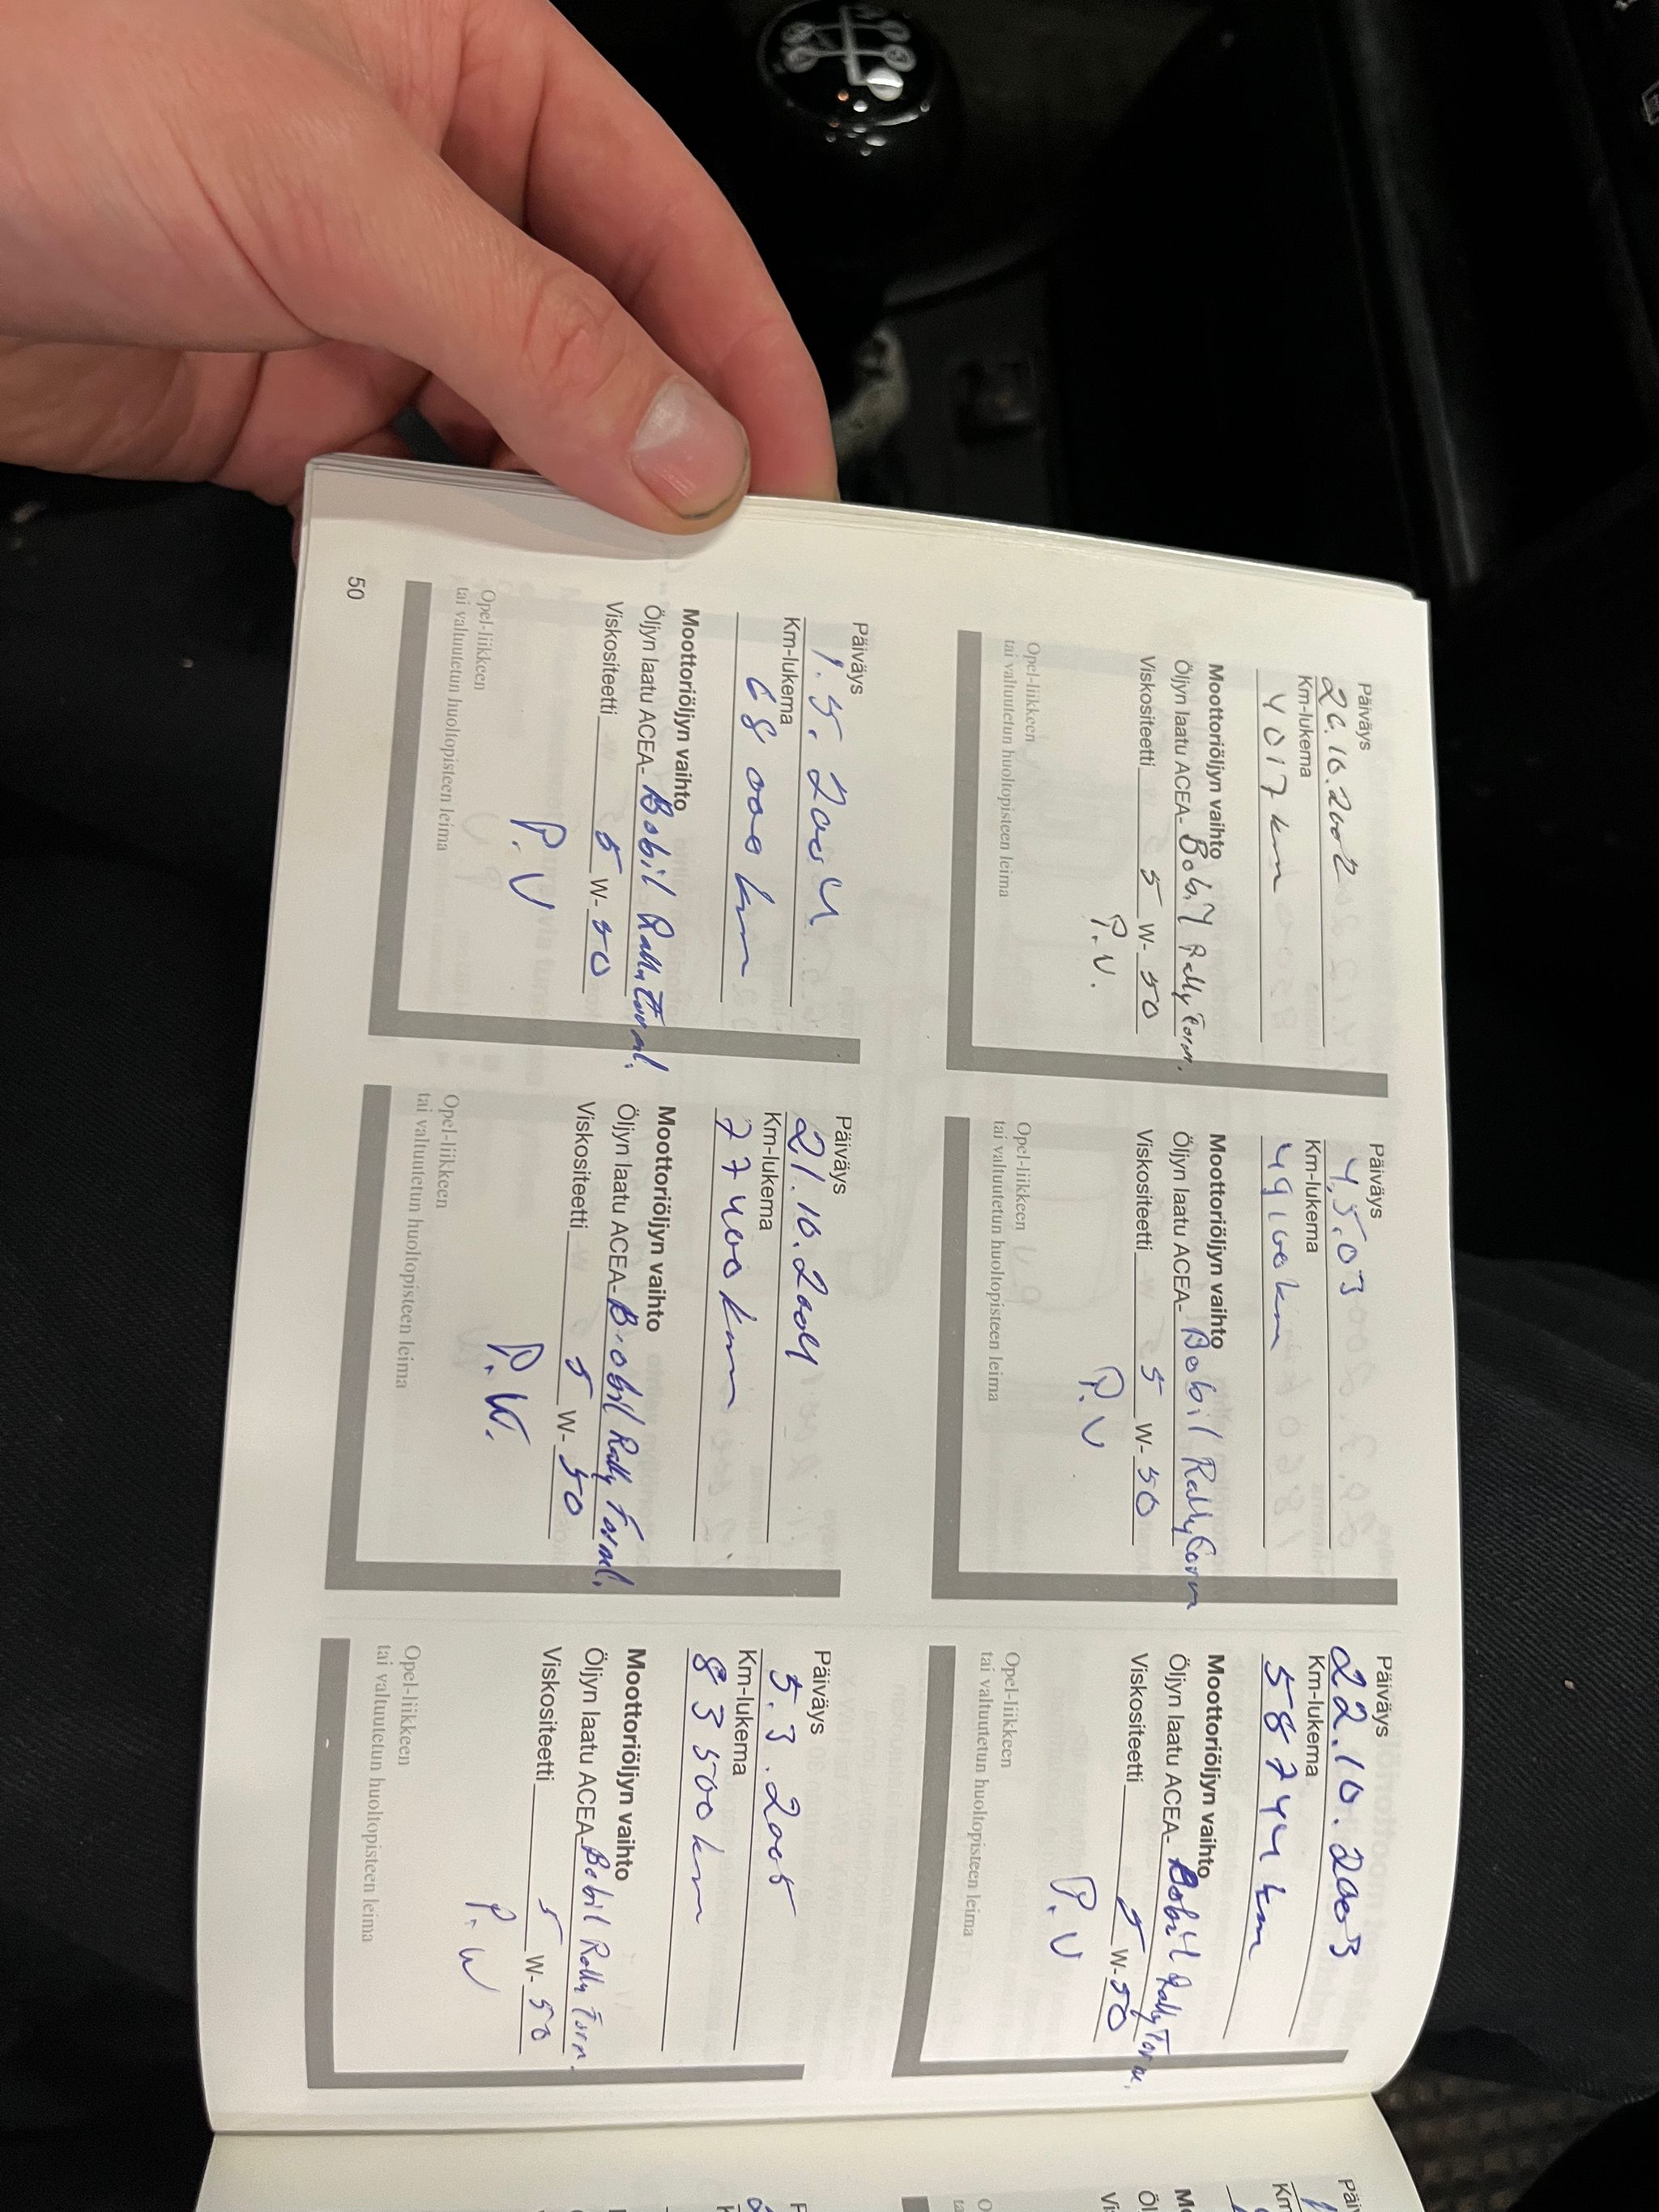 Päiväys
26.10.2002
Km-lukema
4017 km
Moottoriöljyn vaihto
Öljyn laatu ACEA- Bobil Rally Form.
Viskositeetti 5 W- 50
P.V.
Opel-liikkeen
tai valtuutetun huoltopisteen leima
Päiväys
4.5.03
Km-lukema
49100 km
Moottoriöljyn vaihto
Öljyn laatu ACEA- Bobil Rally Form
Viskositeetti 5 W- 50
P.V
Opel-liikkeen
tai valtuutetun huoltopisteen leima
Päiväys
22.10.2003
Km-lukema
58744 km
Moottoriöljyn vaihto
Öljyn laatu ACEA- Bobil Rally Form.
Viskositeetti 5 W- 50
P.V
Opel-liikkeen
tai valtuutetun huoltopisteen leima
Päiväys
1.5.2004
Km-lukema
68 000 km
Moottoriöljyn vaihto
Öljyn laatu ACEA- Bobil Rally Forml.
Viskositeetti 5 W- 50
P.V
Opel-liikkeen
tai valtuutetun huoltopisteen leima
Päiväys
21.10.2004
Km-lukema
77400 km
Moottoriöljyn vaihto
Öljyn laatu ACEA- Bobil Rally Forml.
Viskositeetti 5 W- 50
P.V.
Opel-liikkeen
tai valtuutetun huoltopisteen leima
Päiväys
5.3.2005
Km-lukema
83500 km
Moottoriöljyn vaihto
Öljyn laatu ACEA- Bobil Rally Form.
Viskositeetti 5 W- 50
P.V
Opel-liikkeen
tai valtuutetun huoltopisteen leima
50